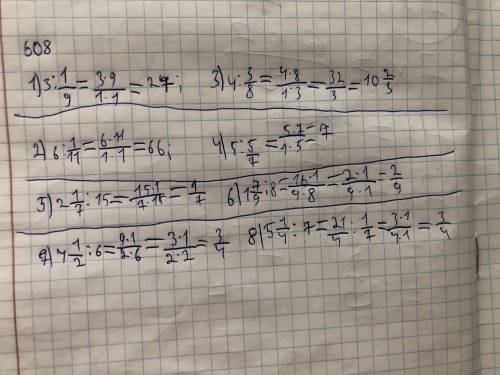 608
1) 3 : 1/9 = 3·9/1·1 = 27; 3) 4 : 3/8 = 4·8/1·3 = 32/3 = 10 2/3
2) 6 : 1/11 = 6·11/1·1 = 66; 4) 5 : 5/7 = 5·7/1·5 = 7
5) 2 1/7 : 15 = 15·1/7·15 = 1/7 6) 1 7/9 : 8 = 16·1/9·8 = 2·1/9·1 = 2/9
7) 4 1/2 : 6 = 9·1/2·6 = 3·1/2·2 = 3/4 8) 5 1/4 : 7 = 21/4 · 1/7 = 3·1/4·1 = 3/4